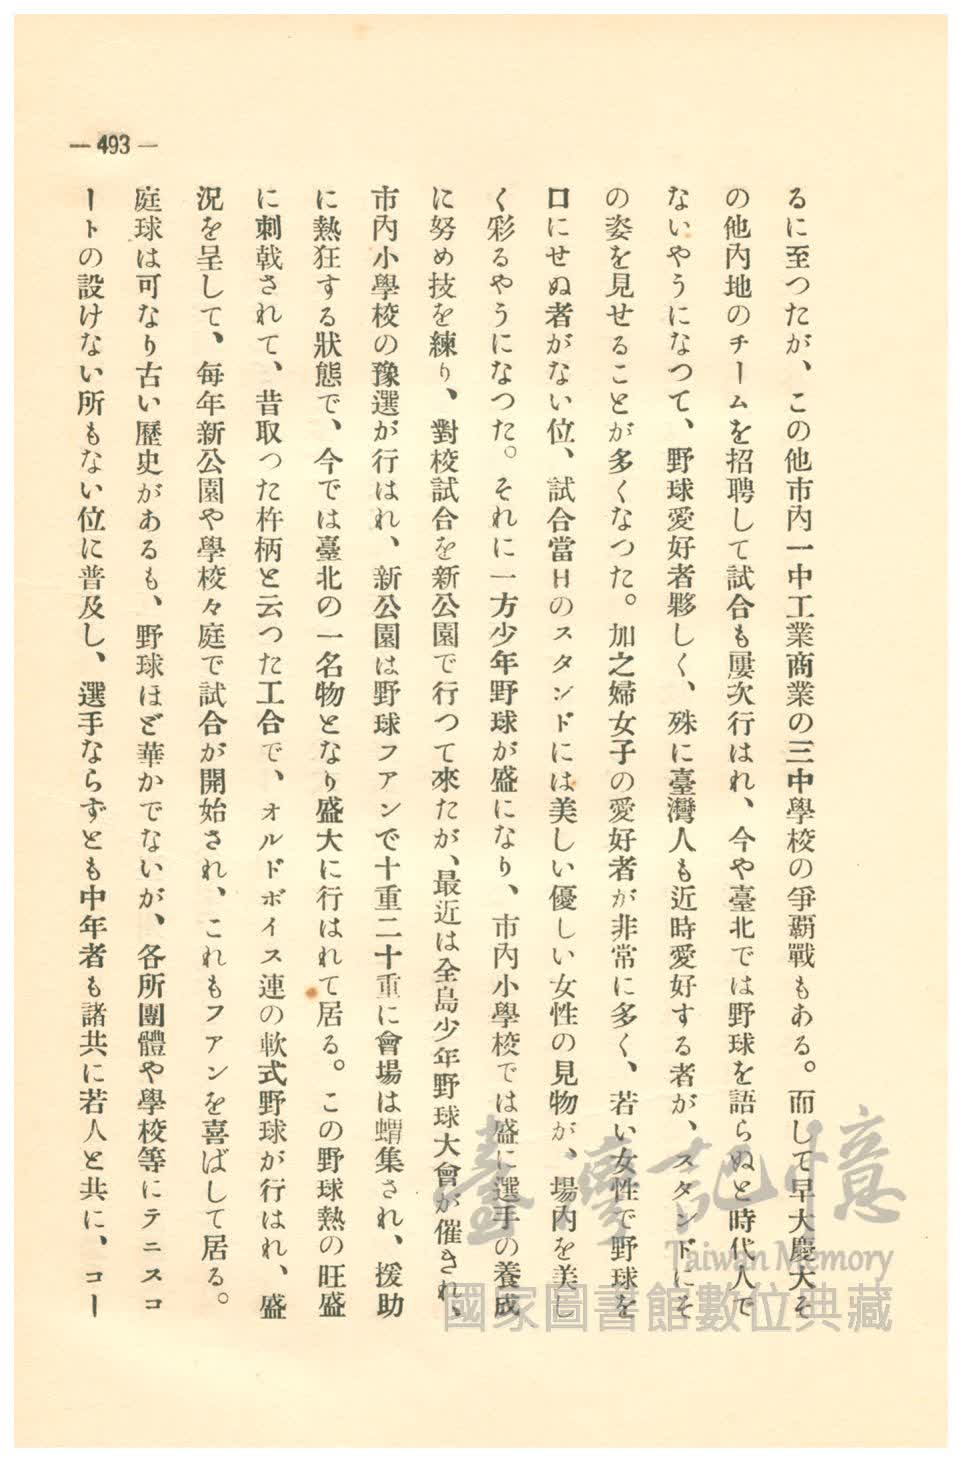 — 493 —
るに至つたが、この他市內一中工業商業の三中學校の爭覇戰もある。而して早大慶大そ
の他內地のチームを招聘して試合も屢次行はれ、今や臺北では野球を語らぬと時代人で
ないやうになつて、野球愛好者夥しく、殊に臺灣人も近時愛好する者が、スタンドにそ
の姿を見せることが多くなつた。加之婦女子の愛好者が非常に多く、若い女性で野球を
口にせぬ者がない位、試合當日のスタンドには美しい優しい女性の見物が、場內を美し
く彩るやうになつた。それに一方少年野球が盛になり、市內小學校では盛に選手の養成
に努め技を練り、對校試合を新公園で行つて來たが、最近は全島少年野球大會が催され、
市內小學校の豫選が行はれ、新公園は野球フアンで十重二十重に會場は蝟集され、援助
に熱狂する狀態で、今では臺北の一名物となり盛大に行はれて居る。この野球熱の旺盛
に刺戟されて、昔取つた杵柄と云つた工合で、オルドボイス連の軟式野球が行はれ、盛
況を呈して、每年新公園や學校々庭で試合が開始され、これもフアンを喜ばして居る。
庭球は可なり古い歷史があるも、野球ほど華かでないが、各所團體や學校等にテニスコ
ートの設けない所もない位に普及し、選手ならずとも中年者も諸共に若人と共に、コー
臺灣記憶
Taiwan Memory
國家圖書館數位典藏